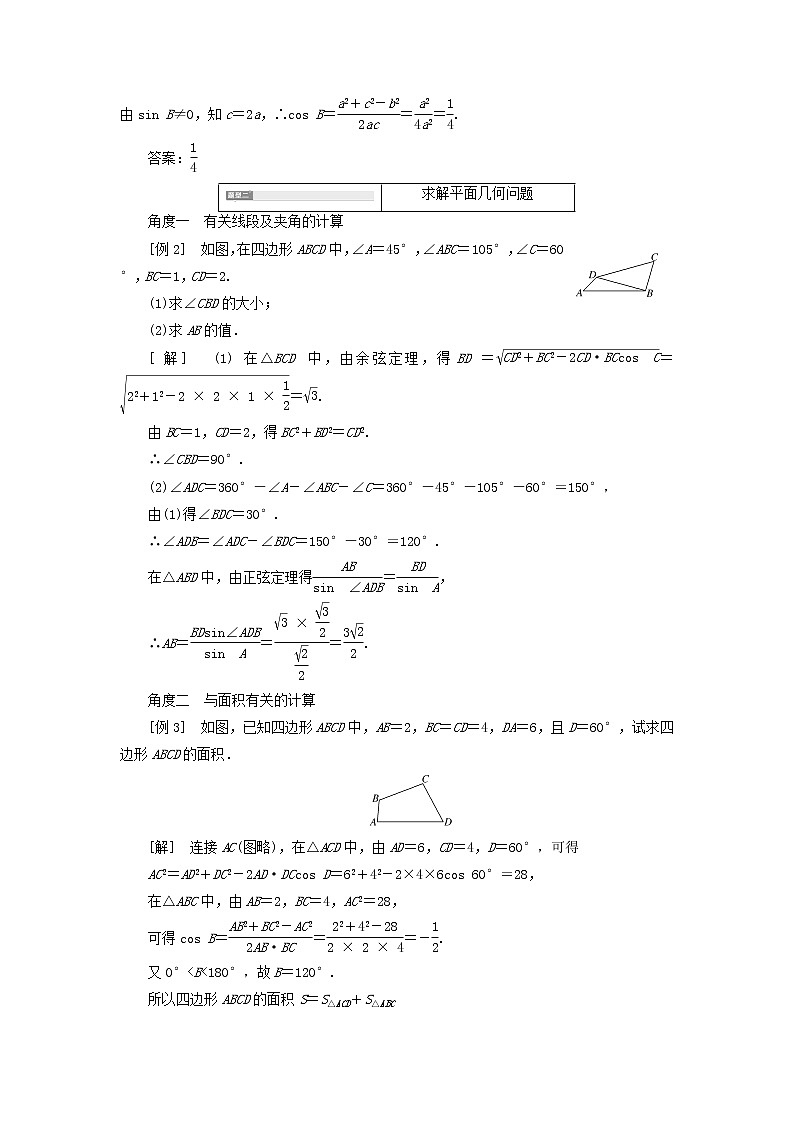 由 sin B≠0,知 c=2a,∴cos B=\frac{a²+c²-b²}{2ac}=\frac{a²}{4a²}=\frac{1}{4}.
答案:\frac{1}{4}
题型二 求解平面几何问题
角度一 有关线段及夹角的计算
[例2] 如图,在四边形 ABCD 中,∠A=45°,∠ABC=105°,∠C=60
°,BC=1,CD=2.
(1)求∠CBD 的大小;
(2)求 AB 的值.
A B C D
[解] (1) 在△BCD 中,由余弦定理,得 BD =\sqrt{CD²+BC²-2CD·BCcos C}=
\sqrt{2²+1²-2×2×1×\frac{1}{2}}=\sqrt{3}.
由 BC=1,CD=2,得 BC²+BD²=CD².
∴∠CBD=90°.
(2)∠ADC=360°-∠A-∠ABC-∠C=360°-45°-105°-60°=150°,
由(1)得∠BDC=30°.
∴∠ADB=∠ADC-∠BDC=150°-30°=120°.
在△ABD 中,由正弦定理得\frac{AB}{sin ∠ADB}=\frac{BD}{sin A},
∴AB=\frac{BDsin∠ADB}{sin A}=\frac{\sqrt{3}×\frac{\sqrt{3}}{2}}{\frac{\sqrt{2}}{2}}=\frac{3\sqrt{2}}{2}.
角度二 与面积有关的计算
[例3] 如图,已知四边形 ABCD 中,AB=2,BC=CD=4,DA=6,且 D=60°,试求四
边形 ABCD 的面积.
A B C D
[解] 连接 AC(图略),在△ACD 中,由 AD=6,CD=4,D=60°,可得
AC²=AD²+DC²-2AD·DCcos D=6²+4²-2×4×6cos 60°=28,
在△ABC 中,由 AB=2,BC=4,AC²=28,
可得 cos B=\frac{AB²+BC²-AC²}{2AB·BC}=\frac{2²+4²-28}{2×2×4}=-\frac{1}{2}.
又 0°<B<180°,故 B=120°.
所以四边形 ABCD 的面积 S=S△ACD+S△ABC